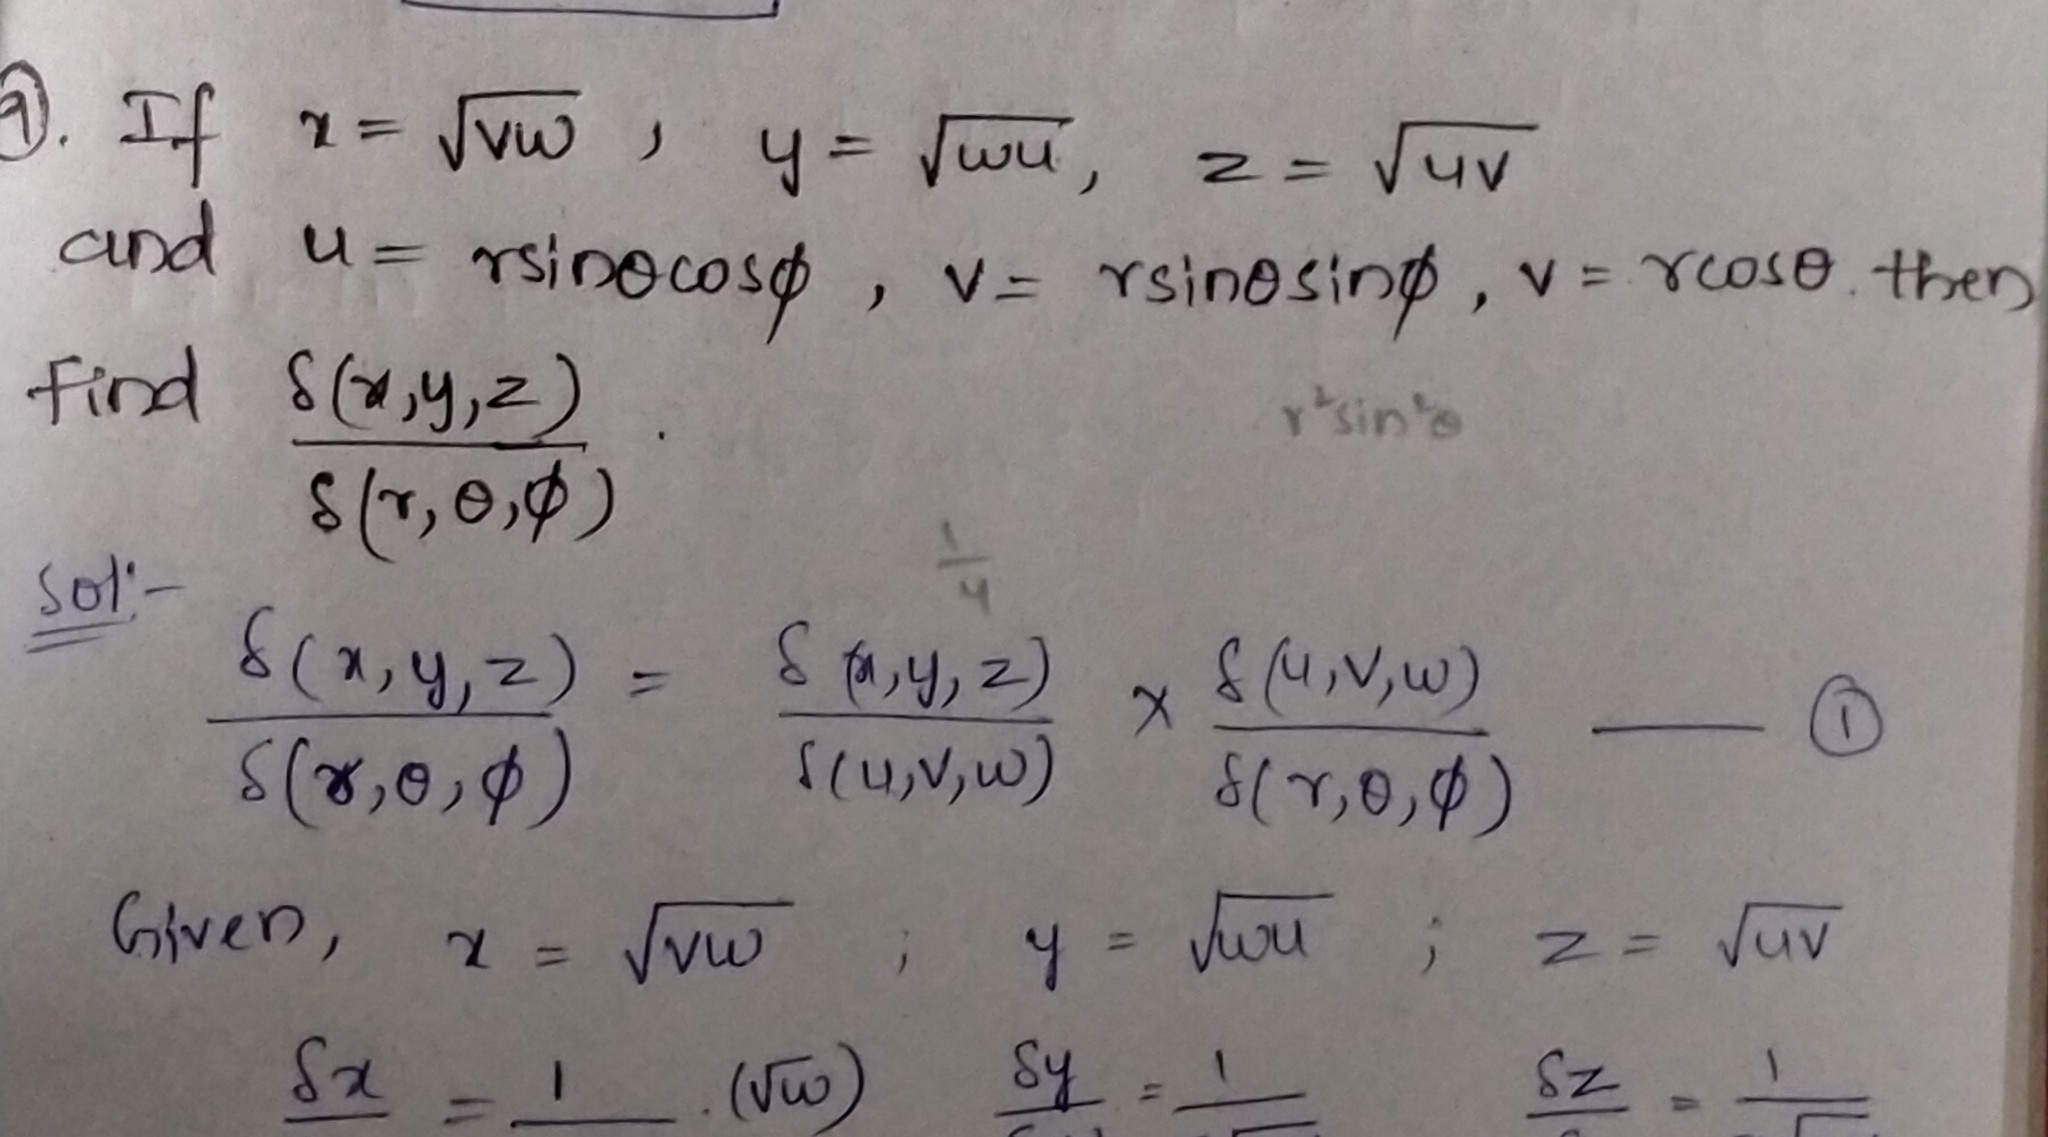 9. If x = √vw , y = √wu, z = √uv
and u = rsinθcosϕ , v = rsinθsinϕ , v = rcosθ. then
Find δ(x,y,z) / δ(r,θ,ϕ) .
r²sin²θ
1/4
Sol:-
δ(x,y,z) / δ(r,θ,ϕ) = δ(x,y,z) / δ(u,v,w) × δ(u,v,w) / δ(r,θ,ϕ) — ①
Given, x = √vw ; y = √wu ; z = √uv
δx = 1 . (√w) δy = 1 δz = 1